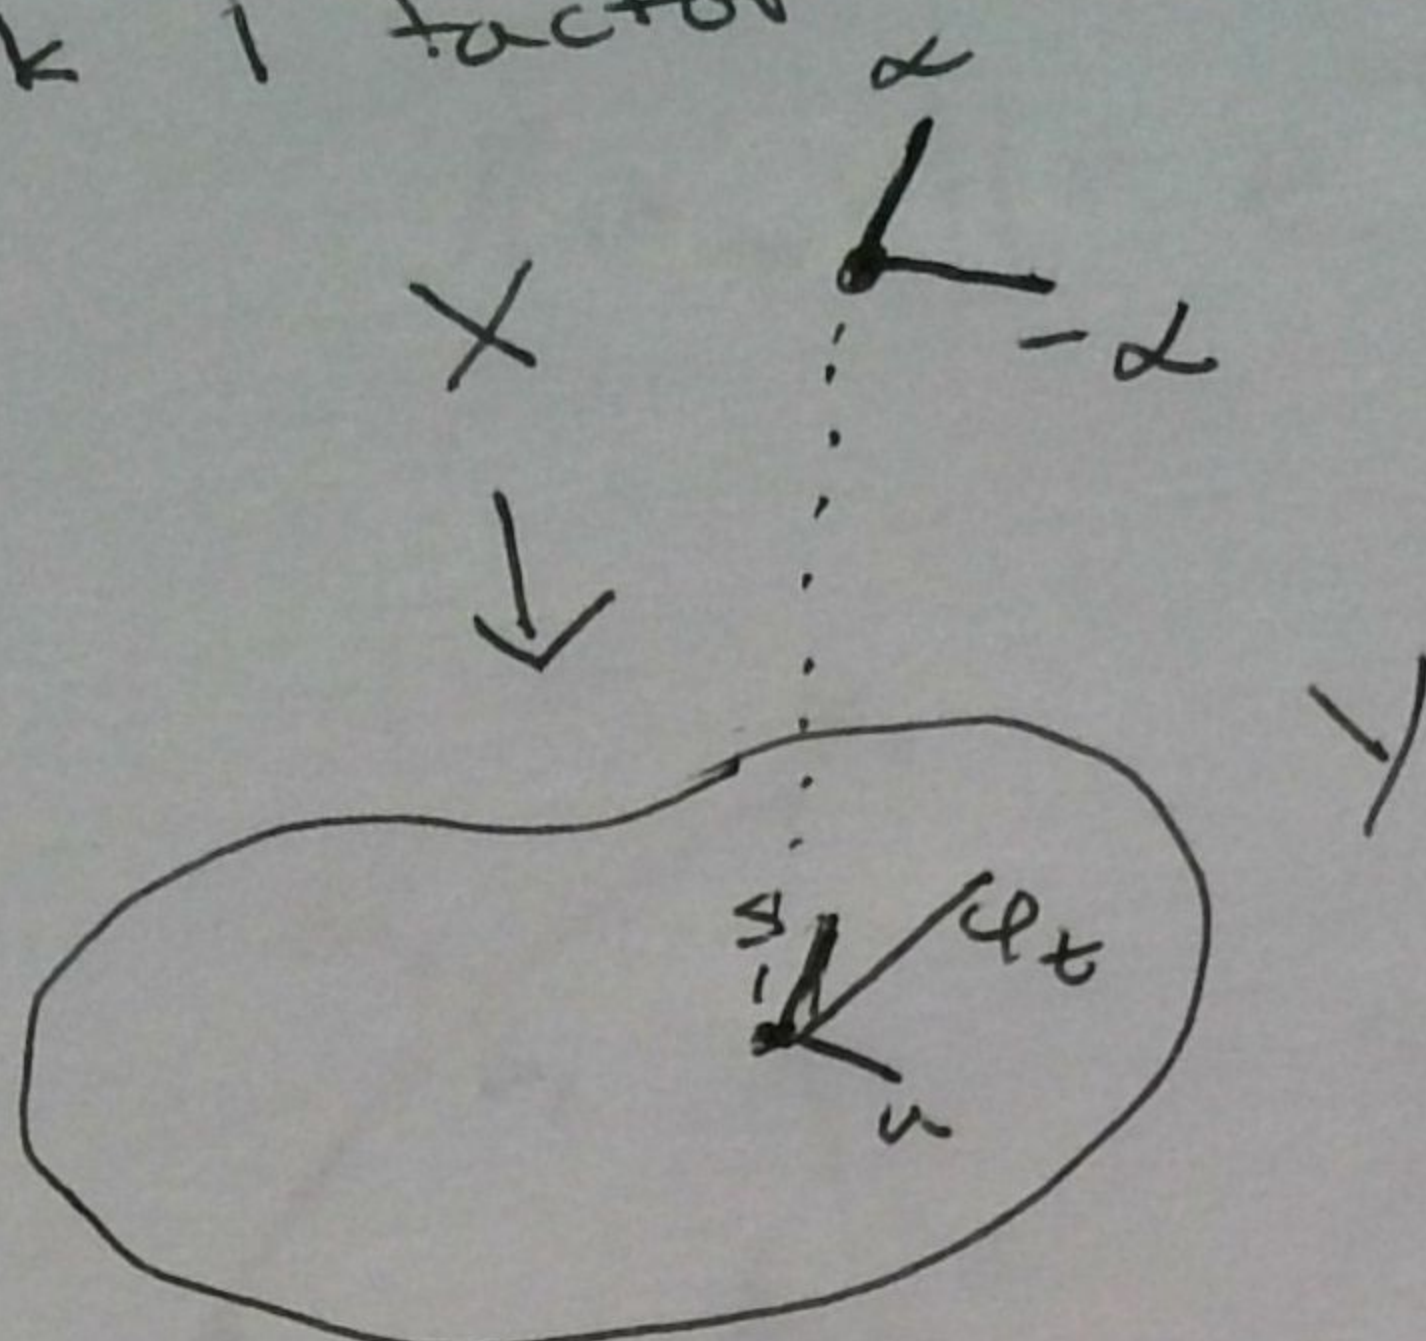 k 1 factor
α
X
- α
Y
s
φt
u